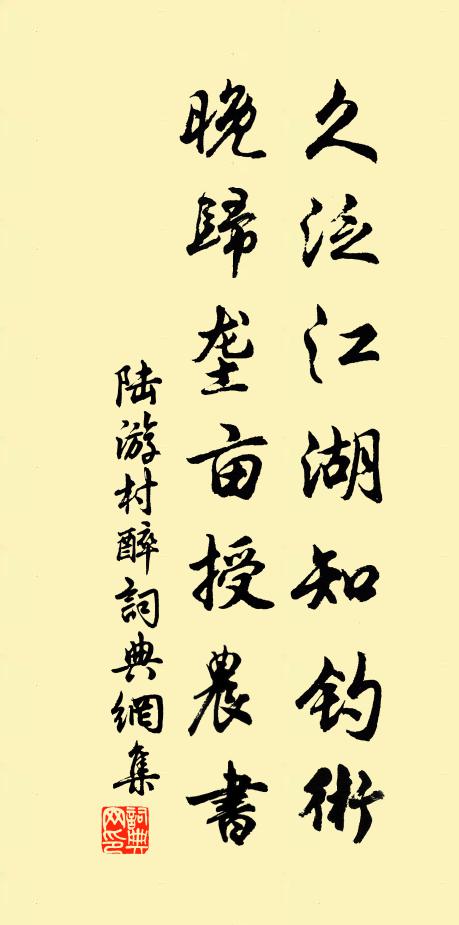 久泛江湖知钓術
晚歸垄亩授農書
陆游村醉詞典網集
詞典网印